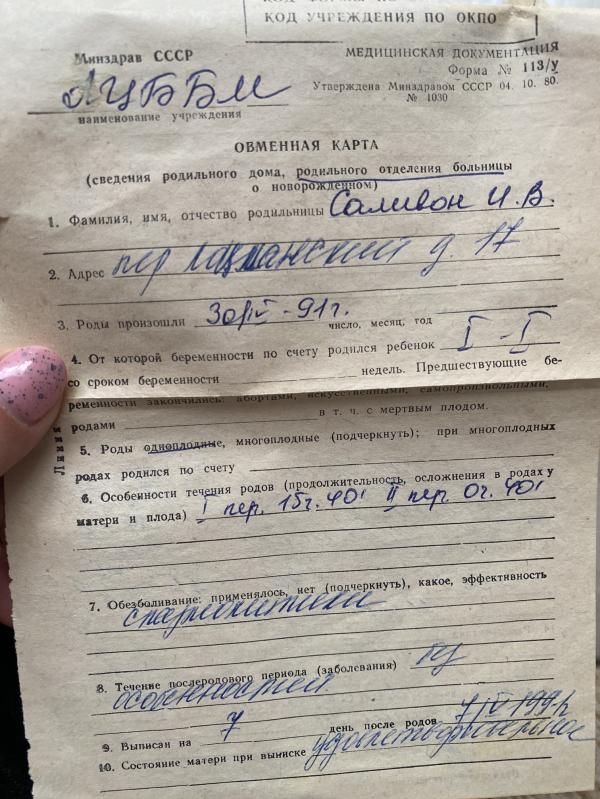 КОД УЧРЕЖДЕНИЯ ПО ОКПО
Минздрав СССР
МЕДИЦИНСКАЯ ДОКУМЕНТАЦИЯ
Форма № 113/У
Утверждена Минздравом СССР 04. 10. 80.
№ 1030
наименование учреждения
ОБМЕННАЯ КАРТА
(сведения родильного дома, родильного отделения больницы
о новорожденном)
1. Фамилия, имя, отчество родильницы Саливон И. В.
2. Адрес пер д. 17
3. Роды произошли 30/IV-91г. число, месяц, год
4. От которой беременности по счету родился ребенок I-I
со сроком беременности недель. Предшествующие бе-
ременности закончились: абортами, искусственными, самопроизвольными,
родами в т. ч. с мертвым плодом.
Линия
5. Роды одноплодные, многоплодные (подчеркнуть); при многоплодных
родах родился по счету
6. Особенности течения родов (продолжительность, осложнения в родах у
матери и плода) I пер. 15ч. 40' II пер. 0ч. 40'
7. Обезболивание: применялось, нет (подчеркнуть), какое, эффективность
спазмолитики
8. Течение послеродового периода (заболевания) без
особенностей
9. Выписан на 7 день после родов
10. Состояние матери при выписке удовлетворительное